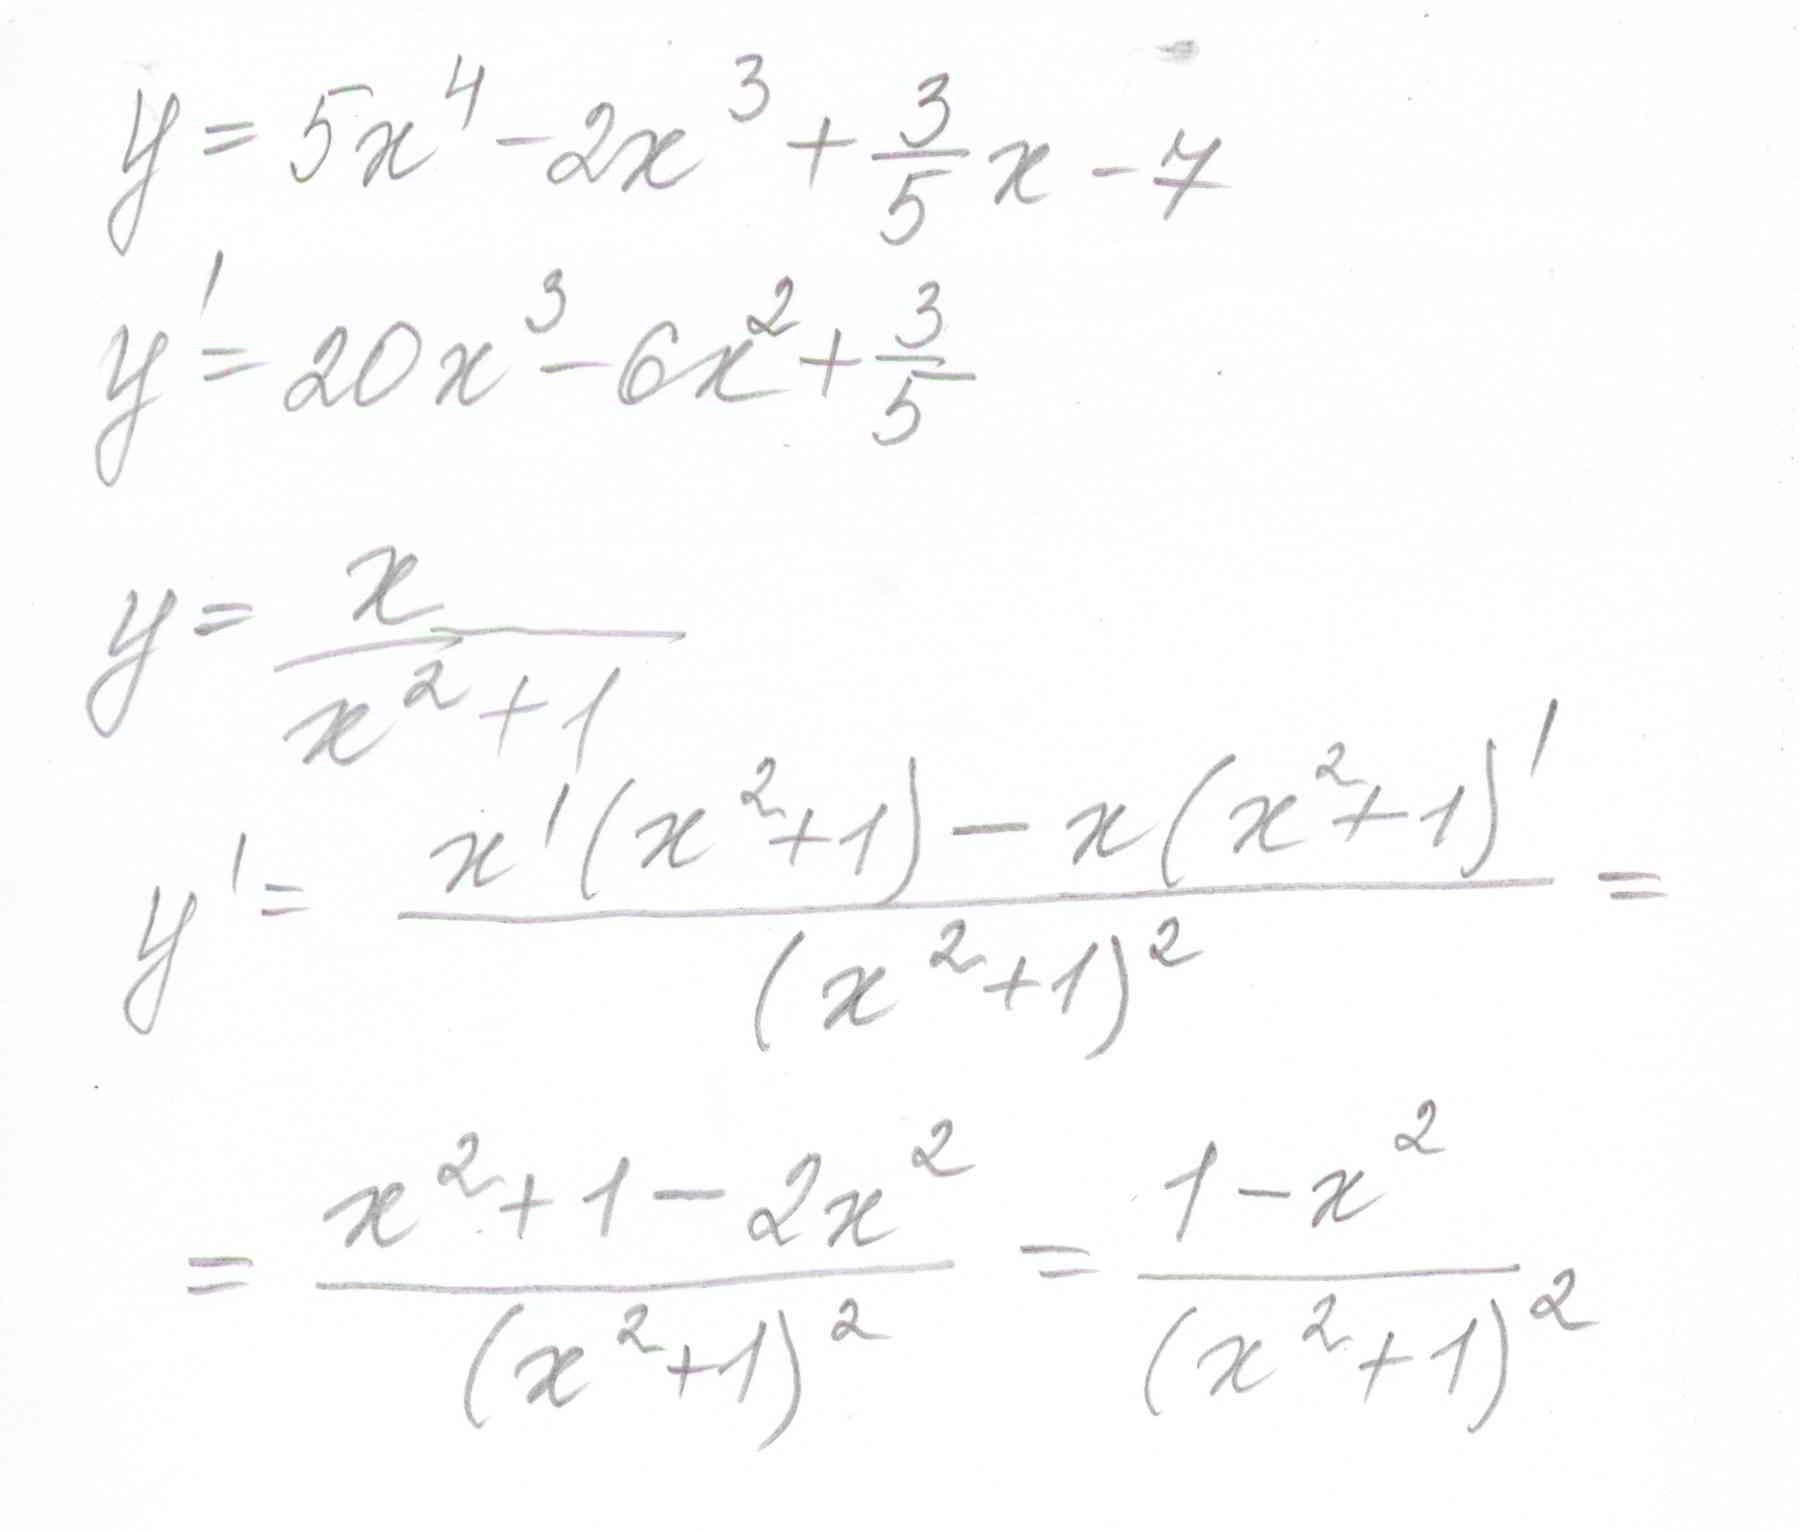 y = 5x⁴ - 2x³ + 3/5 x - 7
y' = 20x³ - 6x² + 3/5
y = x / (x² + 1)
y' = (x'(x² + 1) - x(x² + 1)') / (x² + 1)² =
= (x² + 1 - 2x²) / (x² + 1)² = (1 - x²) / (x² + 1)²